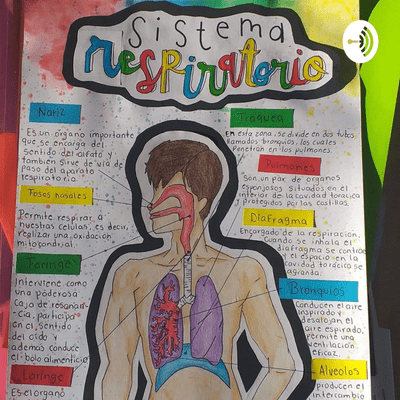 Sistema
respiratorio
Nariz
Es un órgano importante
que se encarga del
sentido del olfato y
también sirve de vía de
paso del aparato
respiratorio.
Fosas nasales
Permite respirar a
nuestras células, es decir,
realizar una oxidación
mitocondrial.
Faringe
Interviene como
una poderosa
caja de resonan-
cia, participa
en el sentido
del oído y
además conduce
el bolo alimenticio
Laringe
Es el órgano
Tráquea
En esta zona, se divide en dos tubos
llamados bronquios, los cuales
penetran en los pulmones.
Pulmones
Son un par de órganos
esponjosos situados en el
interior de la cavidad torácica
y protegidos por las costillas.
Diafragma
Encargado de la respiración.
Cuando se inhala el
diafragma se contrae
y el espacio en la
cavidad torácica se
agranda.
Bronquios
Conducen el aire
inspirado y
desalojan el
aire espirado,
permite una
ventilación
eficaz.
Alveolos
producen el
intercambio